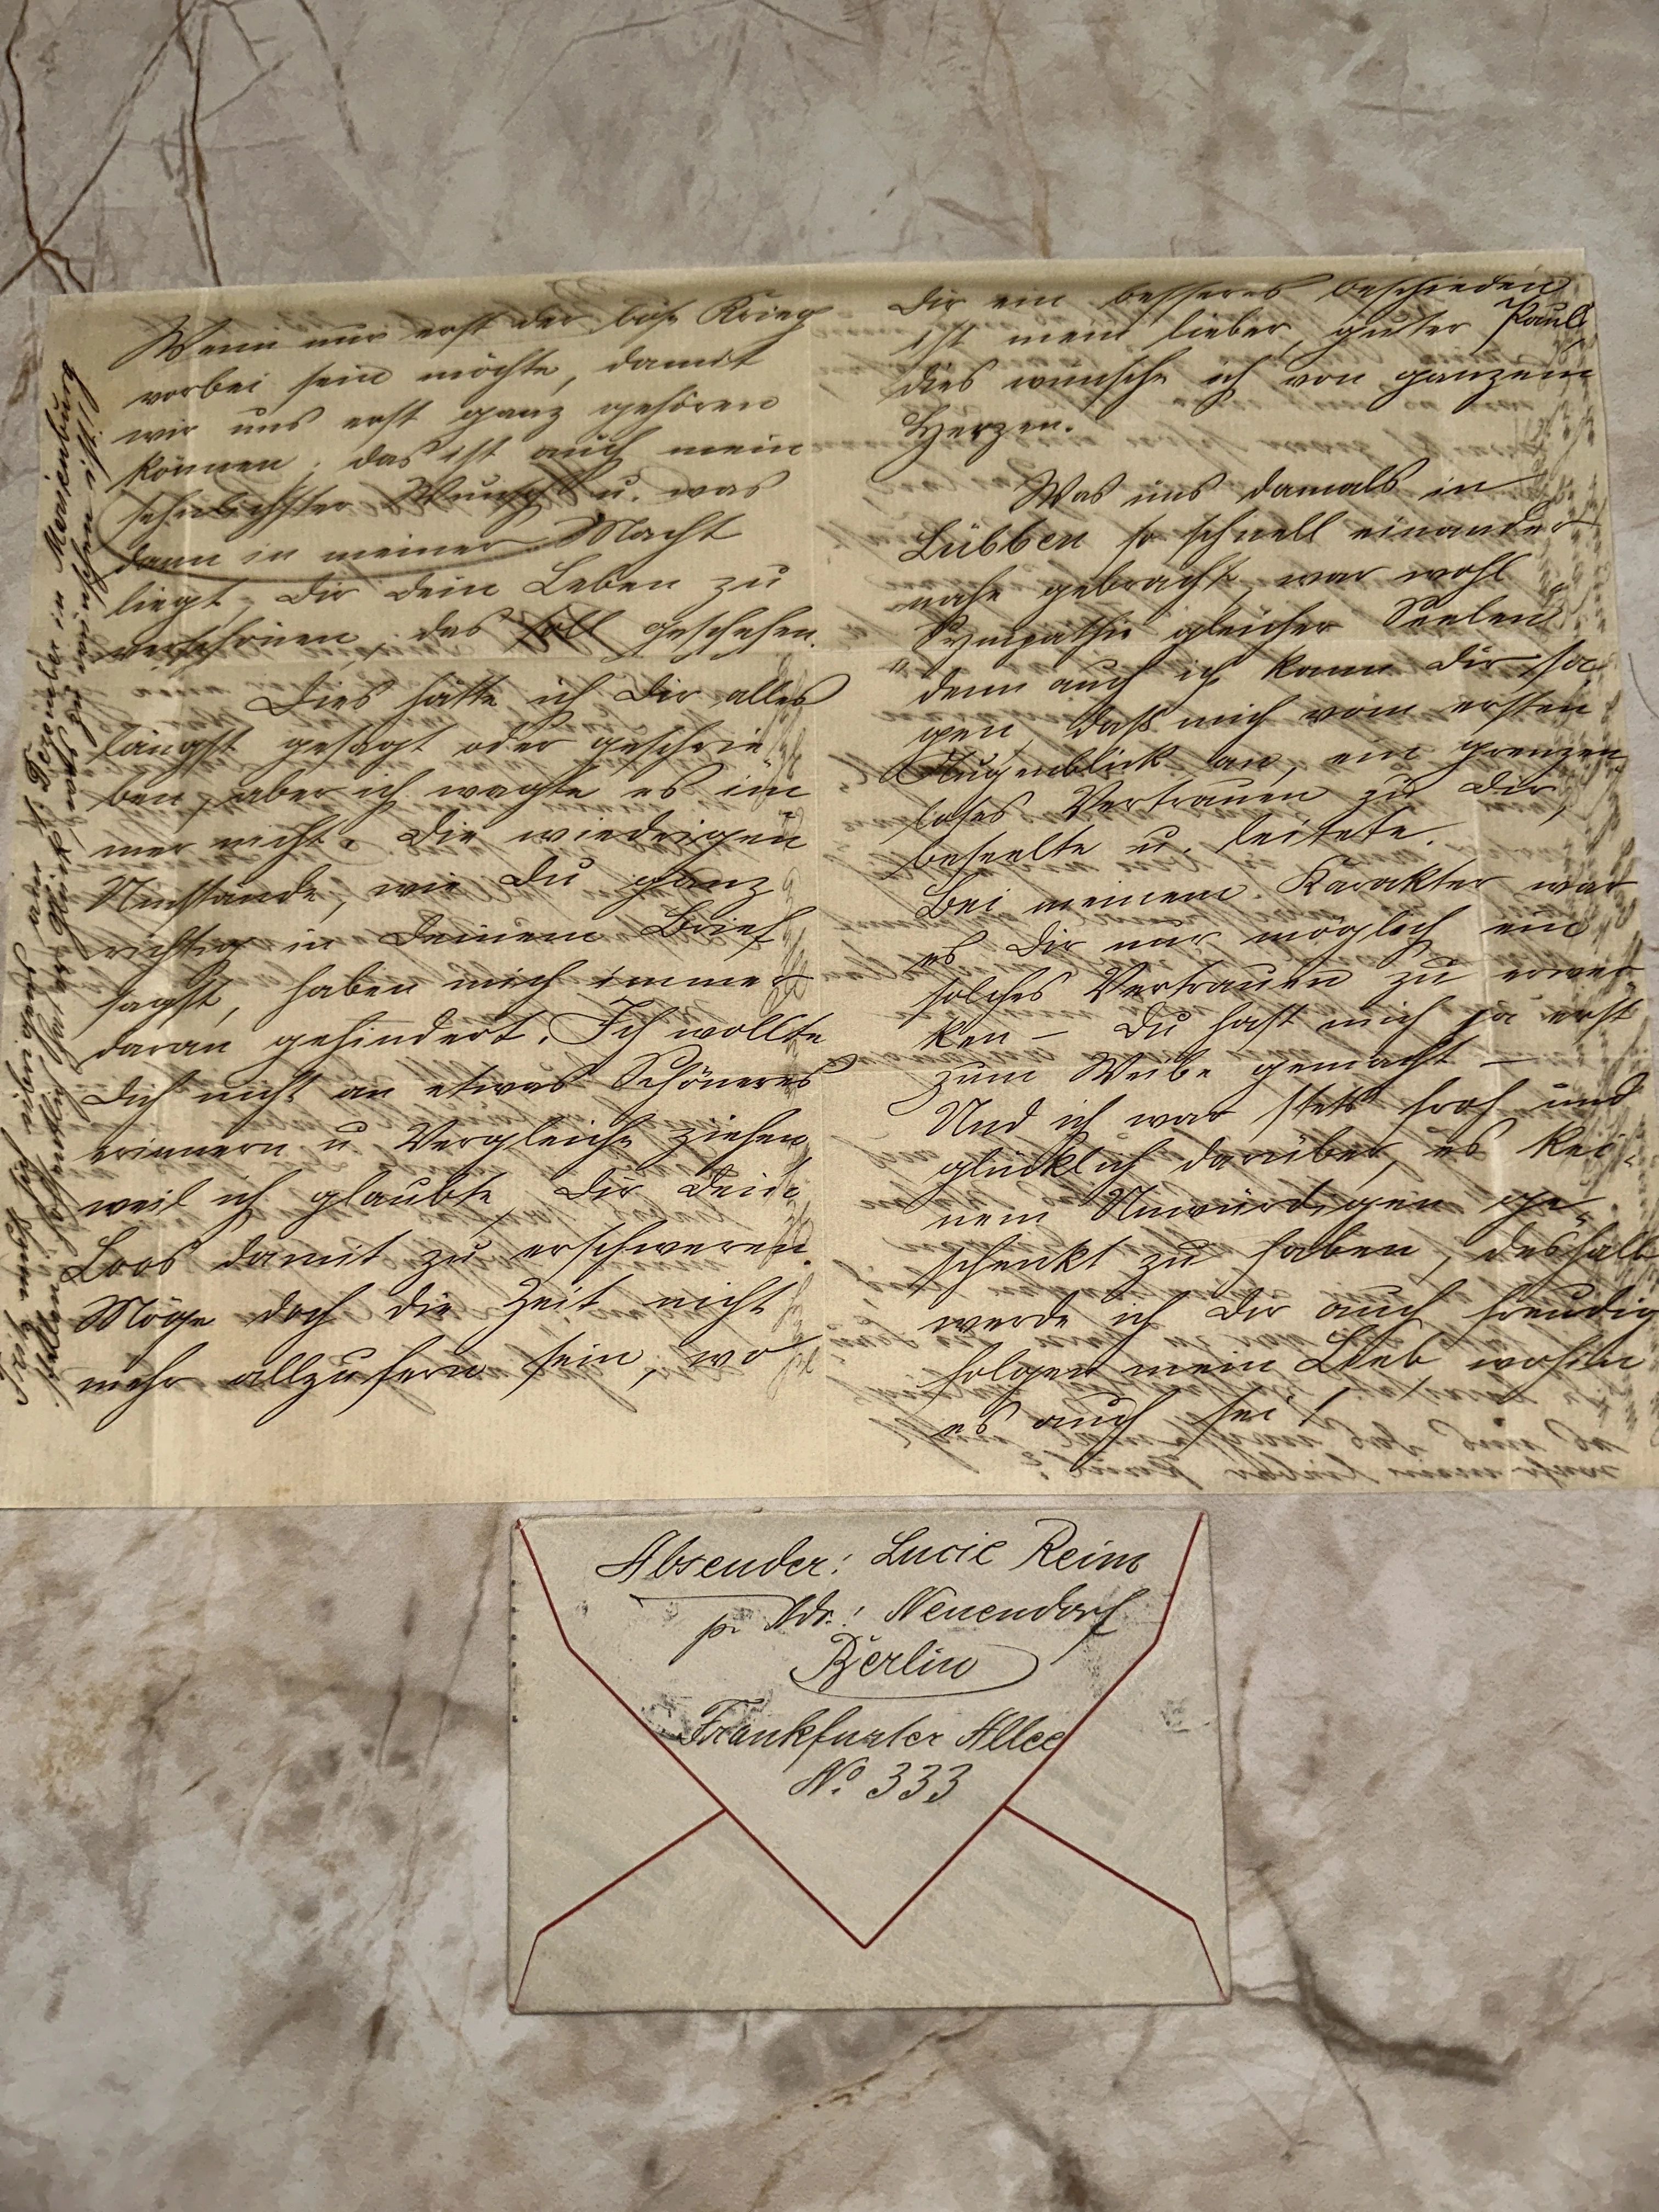 Wenn nur erst der böse Krieg
vorbei sein möchte, damit
wir uns erst ganz gehören
können, das ist auch mein
sehnlichster Wunsch u. was
dann in meiner Macht
liegt, Dir dein Leben zu
verschönen, das soll geschehen.
Dies hätte ich Dir alles
längst gesagt oder geschrie
ben, aber ich wagte es im
mer nicht. Die wiedrigen
Umstände, wie Du ganz
richtig in Deinem Brief
sagst, haben mich immer
daran gehindert. Ich wollte
Dich nicht an etwas Schöneres
erinnern u Vergleiche ziehen,
weil ich glaubte, Dir Dein
Loos damit zu erschweren.
Möge doch die Zeit nicht
mehr allzufern sein, wo
Dir ein besseres beschieden
ist mein lieber, guter Paul,
dies wünsche ich von ganzem
Herzen.
Was uns damals in
Lübben so schnell einander
nahe gebracht, war wohl
Sympathie gleicher Seelen"
denn auch ich kann Dir sa
gen, daß mich vom ersten
Augenblick an, ein grenzen
loses Vertrauen zu Dir,
beseelte u. leitete.
Bei meinem Karakter war
es Dir nur möglich ein
solches Vertrauen zu erwec
ken – Du hast mich ja erst
zum Weibe gemacht –
Und ich war stets froh und
glücklich darüber, es kei-
nem Unwürdigen ge-
schenkt zu haben, deshalb
werde ich Dir auch freudig
folgen mein Lieb, wohin
es auch sei!
muß ich aber Dezember in Marienburg
hoffentlich hat er Glück, was zu wünschen ist!
Absender: Lucie Reim
p. Adr.: Neuendorf
Berlin
Frankfurter Allee
No. 333